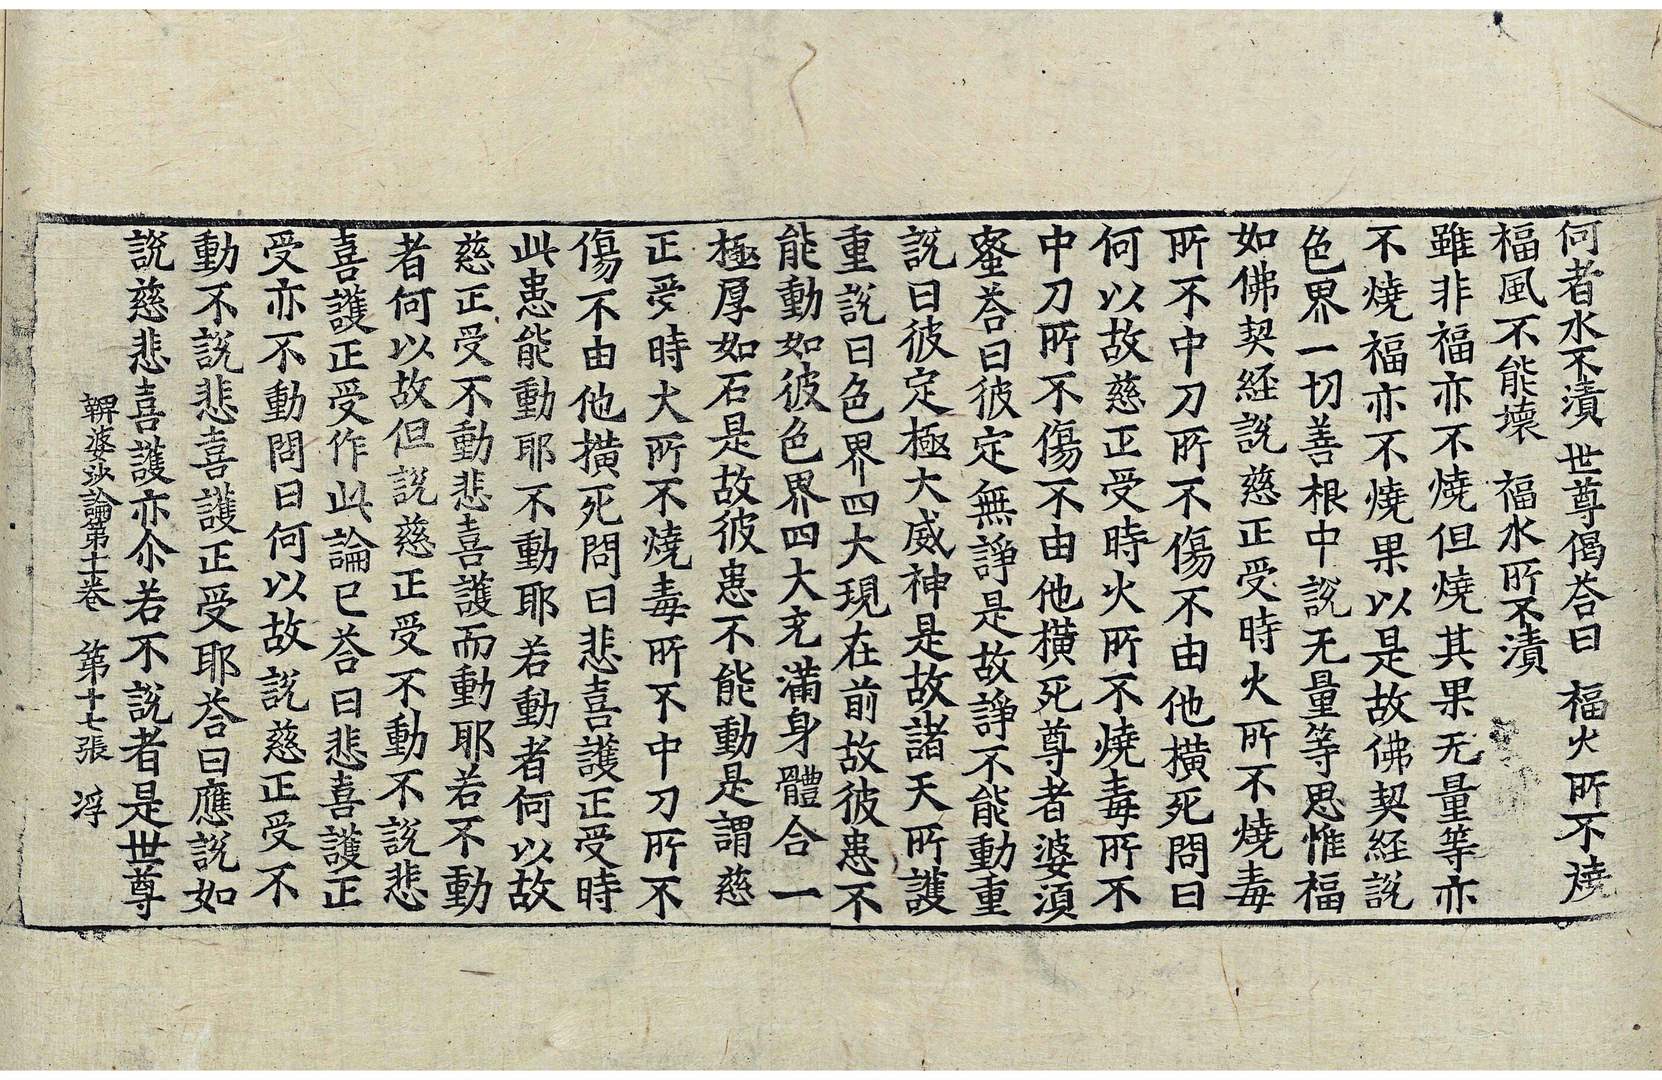 何者水不漬 世尊偈荅曰 福火所不燒
福風不能壞 福水所不漬
雖非福亦不燒但燒其果无量等亦
不燒福亦不燒果以是故佛契経說
色界一切善根中說无量等思惟福
如佛契経說慈正受時火所不燒毒
所不中刀所不傷不由他橫死問曰
何以故慈正受時火所不燒毒所不
中刀所不傷不由他橫死尊者婆須
蜜荅曰彼定無諍是故諍不能動重
說曰彼定極大威神是故諸天所護
重說曰色界四大現在前故彼患不
能動如彼色界四大充滿身體合一
極厚如石是故彼患不能動是謂慈
正受時火所不燒毒所不中刀所不
傷不由他橫死問曰悲喜護正受時
此患能動耶不動耶若動者何以故
慈正受不動悲喜護而動耶若不動
者何以故但說慈正受不動不說悲
喜護正受作此論已荅曰悲喜護正
受亦不動問曰何以故說慈正受不
動不說悲喜護正受耶荅曰應說如
說慈悲喜護亦尒若不說者是世尊
鞞婆沙論第十一卷 第十七張 浮